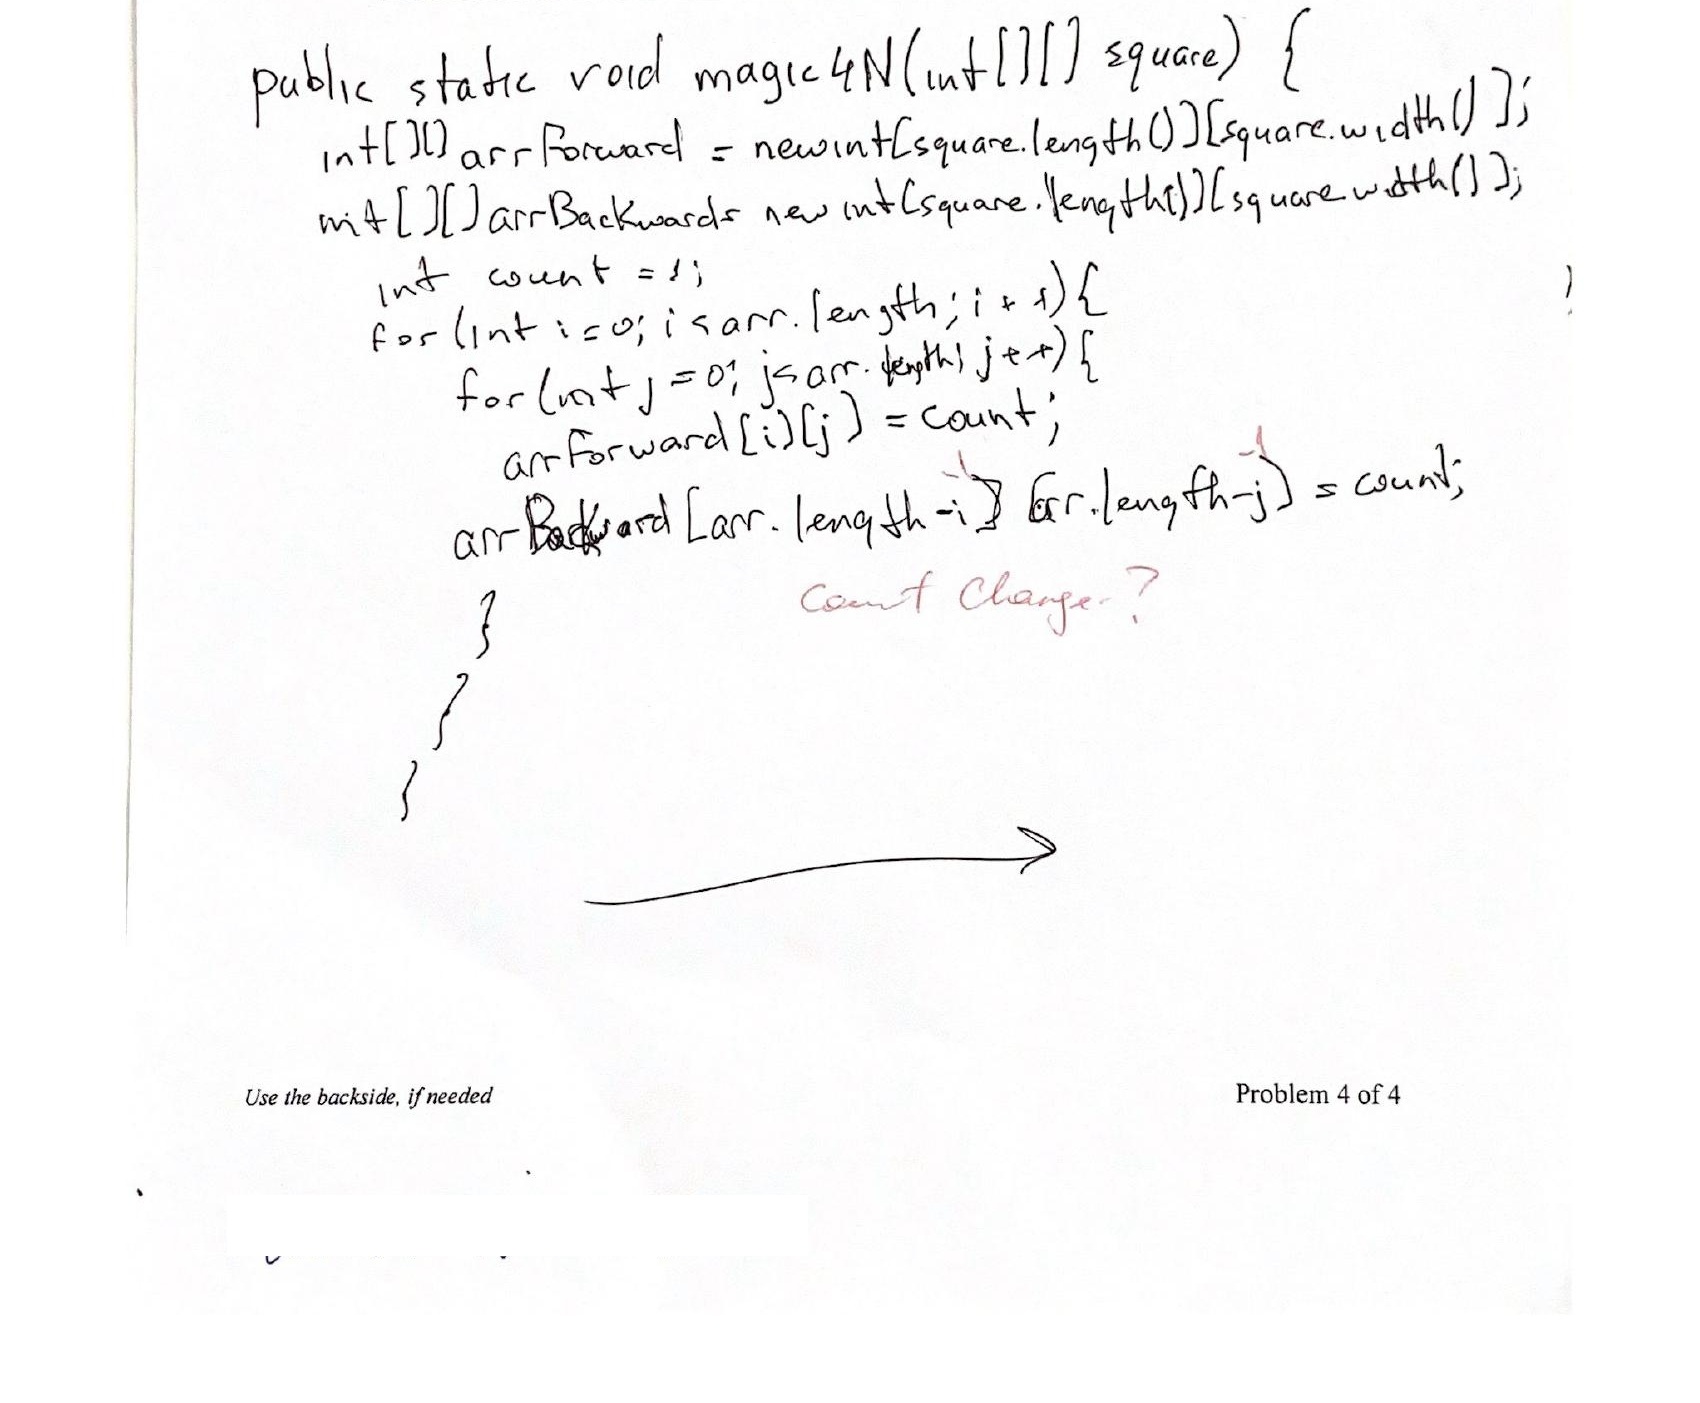 public static void magic4N(int[][] square) {
int[][] arrForward = newint[square.length()][square.width()];
int[][] arrBackwards new int[square.length()][square.width()];
int count = 1;
for (int i=0; i<arr.length; i++){
for(int j=0; j<arr.length; j++){
arrForward[i][j] = count;
-1 -1
arrBackward[arr.length-i][arr.length-j] = count;
Count Change-?
}
}
}
Use the backside, if needed
Problem 4 of 4